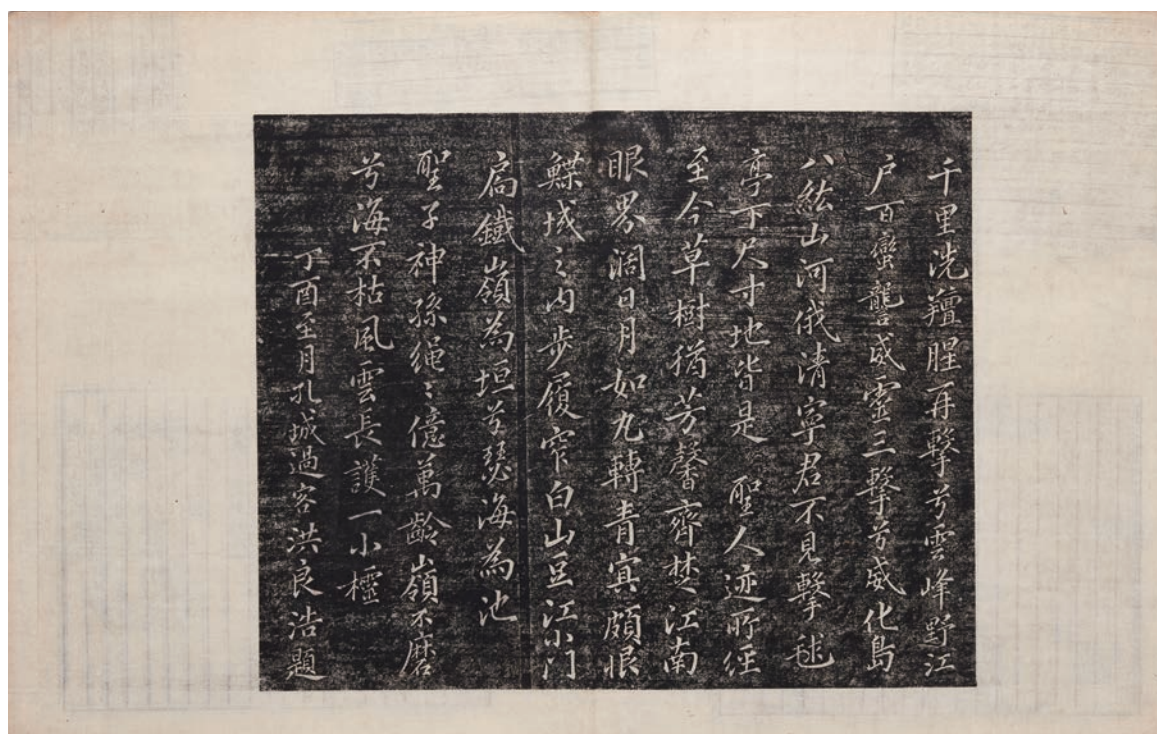 千里洗羶腥再擊兮雲峰野江
戶百蠻讋威靈三擊兮威化島
八紘山河俄清寧君不見擊毬
亭下尺寸地皆是 聖人迹所經
至今草樹猶芳馨齊楚江南
眼界濶日月如丸轉青冥頗恨
鰈域之內步履窄白山豆江小門
扃鐵嶺為垣兮瑟海為池
聖子神孫繩〻億萬齡嶺不磨
兮海不枯風雲長護一小櫺
丁酉至月孔城過客洪良浩題